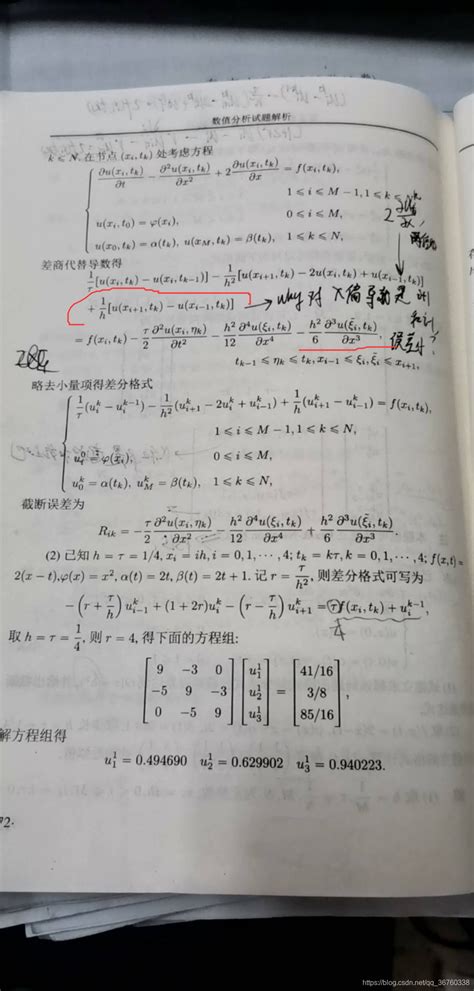 数值分析试题解析
k ∈ N, 在节点 (xᵢ, tₖ) 处考虑方程
∂u(xᵢ, tₖ)/∂t − ∂²u(xᵢ, tₖ)/∂x² + 2∂u(xᵢ, tₖ)/∂x = f(xᵢ, tₖ),
1 ⩽ i ⩽ M−1, 1 ⩽ k ⩽
u(xᵢ, t₀) = φ(xᵢ), 0 ⩽ i ⩽ M,
u(x₀, tₖ) = α(tₖ), u(x_M, tₖ) = β(tₖ), 1 ⩽ k ⩽ N,
差商代替导数得
1/τ[u(xᵢ, tₖ) − u(xᵢ, tₖ₋₁)] − 1/h²[u(xᵢ₊₁, tₖ) − 2u(xᵢ, tₖ) + u(xᵢ₋₁, tₖ)]
+ 1/h[u(xᵢ₊₁, tₖ) − u(xᵢ₋₁, tₖ)] → why 对 X 偏导数是
= f(xᵢ, tₖ) − τ/2 ∂²u(xᵢ, ηₖ)/∂t² − h²/12 ∂⁴u(ξᵢ, tₖ)/∂x⁴ − h²/6 ∂³u(ξ̃ᵢ, tₖ)/∂x³, 误差
tₖ₋₁ ⩽ ηₖ ⩽ tₖ, xᵢ₋₁ ⩽ ξᵢ, ξ̃ᵢ ⩽ xᵢ₊₁,
略去小量项得差分格式
1/τ(uᵢᵏ − uᵢᵏ⁻¹) − 1/h²(uᵢ₊₁ᵏ − 2uᵢᵏ + uᵢ₋₁ᵏ) + 1/h(uᵢ₊₁ᵏ − uᵢ₋₁ᵏ) = f(xᵢ, tₖ),
1 ⩽ i ⩽ M−1, 1 ⩽ k ⩽ N,
uᵢ⁰ = φ(xᵢ), 0 ⩽ i ⩽ M,
u₀ᵏ = α(tₖ), u_Mᵏ = β(tₖ), 1 ⩽ k ⩽ N,
截断误差为
Rᵢₖ = −τ/2 ∂²u(xᵢ, ηₖ)/∂x² − h²/12 ∂⁴u(ξᵢ, tₖ)/∂x⁴ + h²/6 ∂³u(ξ̃ᵢ, tₖ)/∂x³.
(2) 已知 h = τ = 1/4, xᵢ = ih, i = 0, 1, ⋯, 4; tₖ = kτ, k = 0, 1, ⋯, 4; f(x, t) =
2(x − t), φ(x) = x², α(t) = 2t, β(t) = 2t + 1. 记 r = τ/h², 则差分格式可写为
−(r + τ/h)uᵢ₋₁ᵏ + (1 + 2r)uᵢᵏ − (r − τ/h)uᵢ₊₁ᵏ = τf(xᵢ, tₖ) + uᵢᵏ⁻¹,
取 h = τ = 1/4, 则 r = 4, 得下面的方程组:
9 −3 0 u₁¹ 41/16
−5 9 −3 u₂¹ = 3/8 ,
0 −5 9 u₃¹ 85/16
解方程组得
u₁¹ = 0.494690 u₂¹ = 0.629902 u₃¹ = 0.940223.
72·
https://blog.csdn.net/qq_36760338